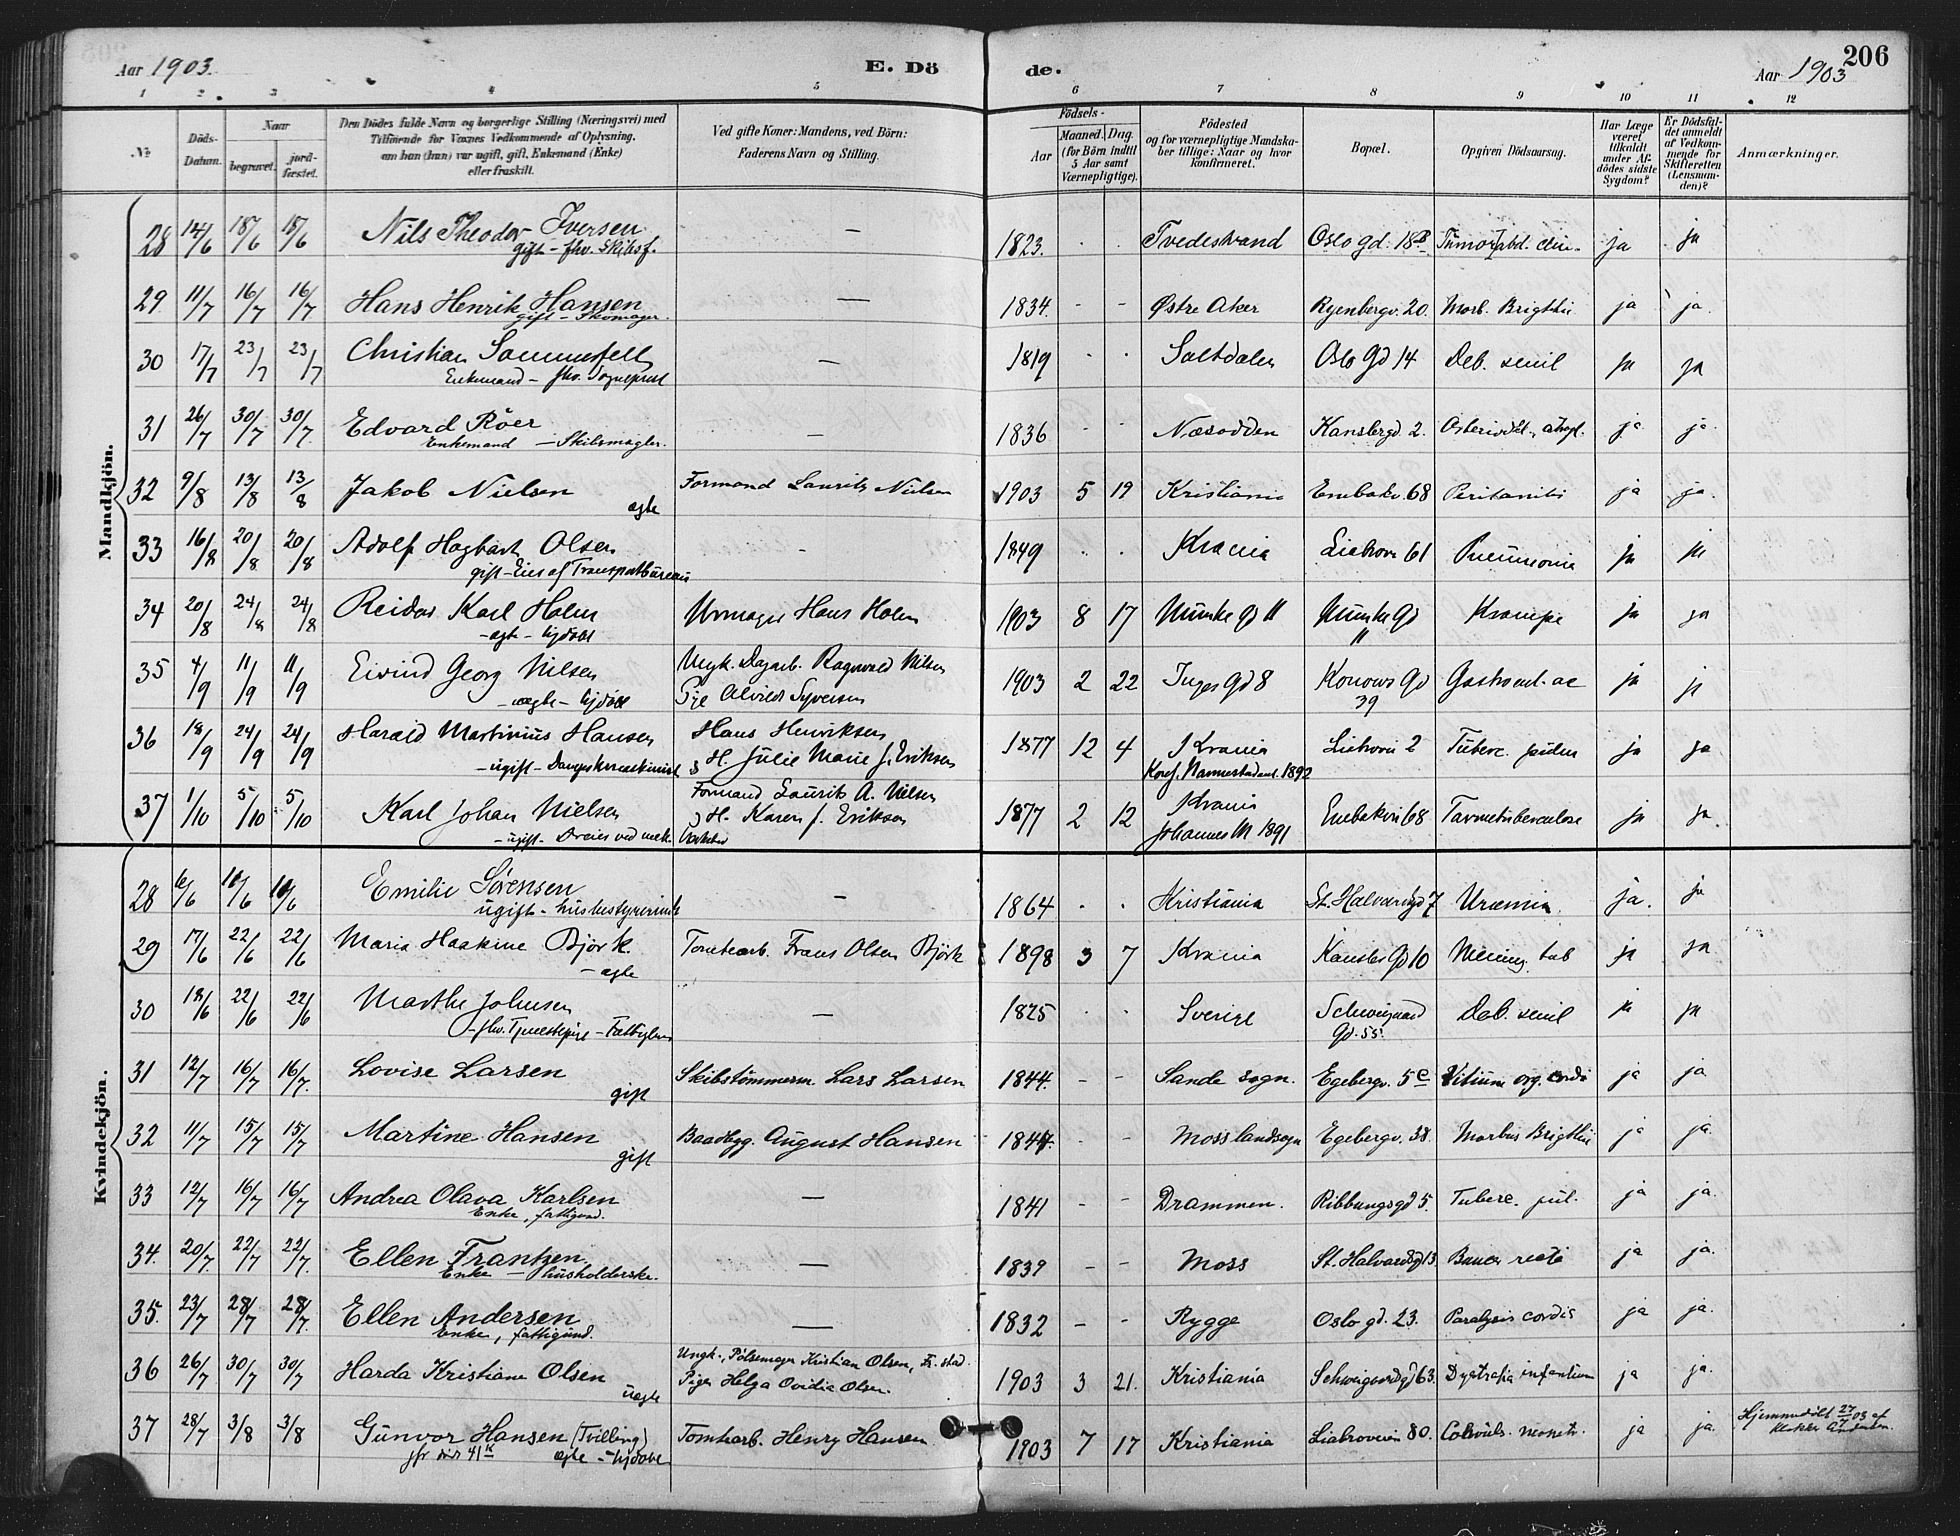 Aar 1903. E. Dö de. Aar 1903 206
1 2 3 4 5 6 7 8 9 10 11 12
№ Döds-Datum. Naar begravet. jordfæstet. Den Dödes fulde Navn og borgerlige Stilling (Næringsvei) med Tilföiende for Voxnes Vedkommende af Oplysning, om han (hun) var ugift, gift, Enkemand (Enke) eller fraskilt. Ved gifte Koner: Mandens, ved Börn: Faderens Navn og Stilling. Födsels- Aar Maaned. Dag. (for Börn indtil 5 Aar samt Værnepligtige). Födested og for værnepligtige Mandskaber tillige: Naar og hvor konfirmeret. Bopæl. Opgiven Dödsaarsag. Har Læge været tilkaldt under Afdödes sidste Sygdom? Er Dödsfaldet anmeldt af Vedkommende for Skifteretten (Lensmanden)? Anmærkninger.
Mandkjön.
28 14/6 18/6 18/6 Nils Theodor Iversen — 1823. Tvedestrand Oslo gd. 18B. Tumor abd. ja ja
gift - fhv. Skibsf.
29. 11/7 16/7 16/7 Hans Henrik Hansen — 1834. - - Østre Aker Ryenbergv. 20. Morb. Brigthii ja ja.
gift - Skomager.
30 17/7 23/7 23/7 Christian Sommerfelt — 1819 Saltdalen Oslo Gd 14 Deb. senil ja ja
Enkemand - fhv. Sogneprest
31 26/7 30/7 30/7. Edvard Röer — 1836 Næsodden Kanslergd. 2. ja ja
Enkemand — Skibsmægler.
32 9/8 13/8 13/8 Jakob Nielsen Formand Laurits Nielsen 1903 5 19 Kristiania Enebakv. 68 Peritonitis ja ja.
ægte
33 16/8 20/8 20/8 Adolf Hagbart Olsen - 1849 Krania Liabrovn 61 Pneumonia ja ja
gift - Eier af Transportbureau
34 20/8 24/8 24/8 Reidar Karl Holm Urmager Hans Holm 1903 8 17 Munke gd 11 Munke Gd 11 Krampe ja ja
- ægte - hjdøbt
35 4/9 11/9 11/9 Eivind Georg Nilsen Ungk. Dagarb. Ragnvald Nilsen 1903 2 22 Inges Gd 8 Konows Gd 39 Gastroent. ac ja ja
- uægte - hjdøbt Pge Alvilde Syversen
36 18/9 24/9 24/9 Harald Martinius Hansen Hans Henriksen 1877 12 4 Krania Liabrovn 2 Tuberc. pulm ja ja
- ugift - & H. Julie Marie J. Eriksen Konf. 1892
37 1/10 5/10 5/10 Karl Johan Nielsen Formand Laurits A. Nielsen 1877 2 12 Krania Enebakvn 68 Tarmtuberculose ja ja.
- ugift - Dreier ved mek. Værksted & H. Karen J. Eriksen Johannes M 1891
Kvindekjön.
28 6/6 11/6 11/6 Emilie Sörensen — 1864 Kristiania St. Halvardsgd 7 Uræmia. ja. ja
ugift - husbestyrerinde
29 17/6 22/6 22/6 Maria Haakine Björk Tomtearb. Frans Olsen Björk 1898 3 7 Krania Kansler Gd 10 Mening. tub ja ja
- ægte
30 18/6 22/6 22/6 Marthe Johnsen — 1825 Sverige Schweigaard Gd. 55. Deb. senil ja ja
- fhv. Tjenestepige - Fattiglem
31 12/7 16/7 16/7. Lovise Larsen Skibstömmerm. Lars Larsen 1844. - - Sande sogn. Egebergv. 5c Vitium org. cordis ja ja.
gift
32 11/7 15/7 15/7 Martine Hansen Baadbyg. August Hansen 1844. - - Moss landsogn Egebergv. 38. Morbus Brigthii ja ja.
gift
33 12/7 16/7 16/7 Andrea Olava Karlsen — 1841 - - Drammen. Ribbungsgd 5. Tuberc. pul. ja ja.
Enke, fattigund.
34. 20/7. 22/7 22/7. Ellen Frantzen. — 1839 - - Moss St. Halvardsgd 13. Cancer recti ja ja.
Enke — husholderske.
35. 23/7 28/7 28/7. Ellen Andersen — 1832 - - Rygge Oslo gd. 23. Paralysis cordis ja ja.
Enke, fattigund.
36 26/7 30/7 30/7 Harda Kristiane Olsen Ungk., Pølsemager Kristian Olsen, Fr.stad 1903 3 21. Kristiania Schweigaardgd 63. Dystrofia infantum ja ja.
uægte Pigen Helga Ovidia Olsen
37 28/7 3/8 3/8 Gunvor Hansen (Tvilling) Tomtarb. Henry Hansen. 1903 7 17 Kristiania Liabroveien 80. ja ja. Hjemmedöbt 27/7 03 af Andersen.
jfr. 41 ægte - hjdøbt